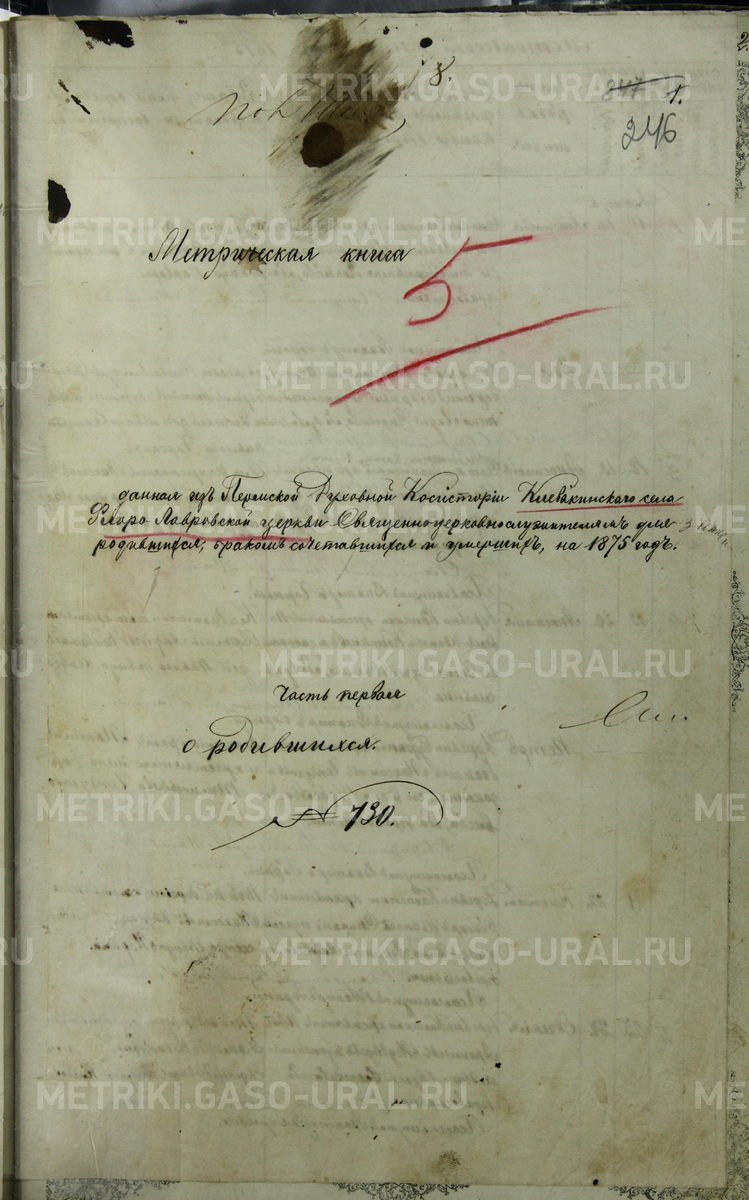 8.
247 1.
246
Метрическая книга
5
данная изъ Пермской Духовной Косісторіи Клевакинскаго села
Флоро Лавровской церкви Священноцерковнослужителямъ для
родившихся, бракомъ сочетавшихся и умершихъ, на 1875 годъ.
Часть первая
о родившихся.
№ 730.
METRIKI.GASO-URAL.RU